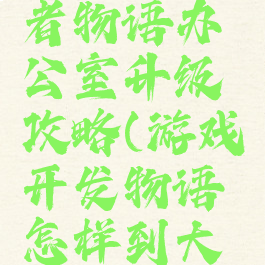 者物语办
公室升级
攻略(游戏
开发物语
怎样到大